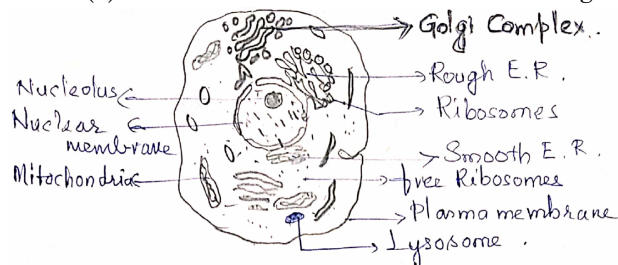 Golgi Complex..
Rough E.R.
Ribosomes
Smooth E.R.
free Ribosomes
Plasma membrane
Lysosome.
Nucleolus
Nuclear
membrane
Mitochondria